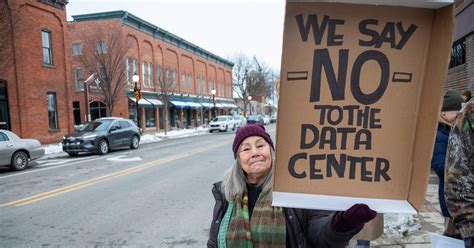 WE SAY
- NO -
TO THE
DATA
CENTER